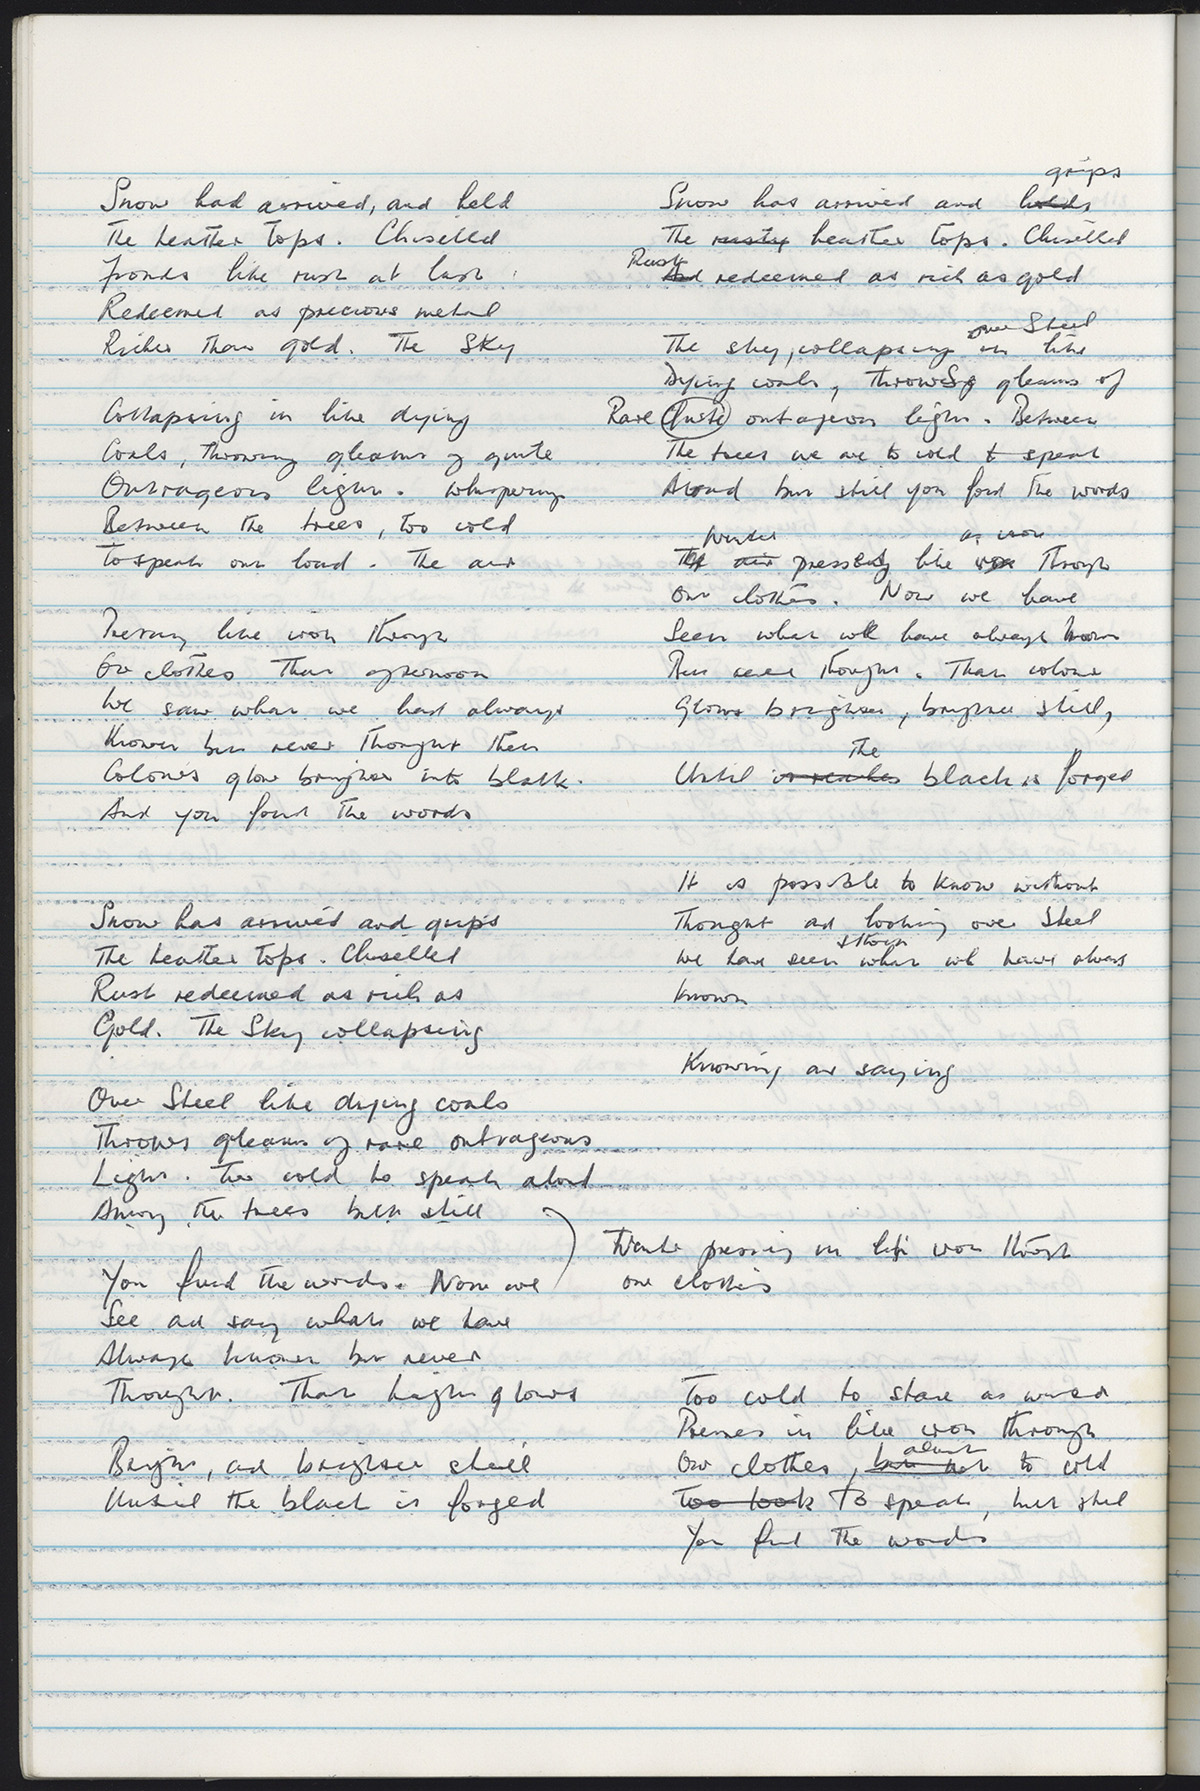 Snow had arrived, and held
The heather tops. Chiselled
fronds like rust at last
Redeemed as precious metal
Richer than gold. The Sky
Collapsing in like dying
Coals, throwing gleams of quite
Outrageous light. Whispering
Between the trees, too cold
To speak out loud. The air
like iron through
Our clothes that afternoon
We saw what we had always
Known but never thought then
Colours glow brighter into black.
And you found the words
Snow has arrived and grips
The heather tops. Chiselled
Rust redeemed as rich as
Gold. The Sky collapsing
Over Steel like dying coals
Throws gleams of rare outrageous
Light. Too cold to speak aloud
Among the trees but still
You find the words. Now we
See and say what we have
Always known but never
Thought. That light glows
Bright, and brighter still
Until the black is forged
grips
Snow has arrived and holds
The rusty heather tops. Chiselled
Rust
And redeemed as rich as gold
over Steel
The sky, collapsing in like
Dying coals, throws gleams of
Rare quite outrageous light. Between
The trees we are to cold to speak
Aloud but still you find the words
Winter as iron
The air pressing like iron through
Our clothes. Now we have
Seen what we have always known
But never thought. That colour
Glows brighter, brighter still,
the
Until it reaches black is forged
It is possible to know without
Thought and looking over Steel
We have seen what we have always
known
Knowing and saying
pressing in like iron through
our clothes
Too cold to stare as wind
Presses in like iron through
aloud
Our clothes, but not to cold
Too look To speak, but still
You find the words